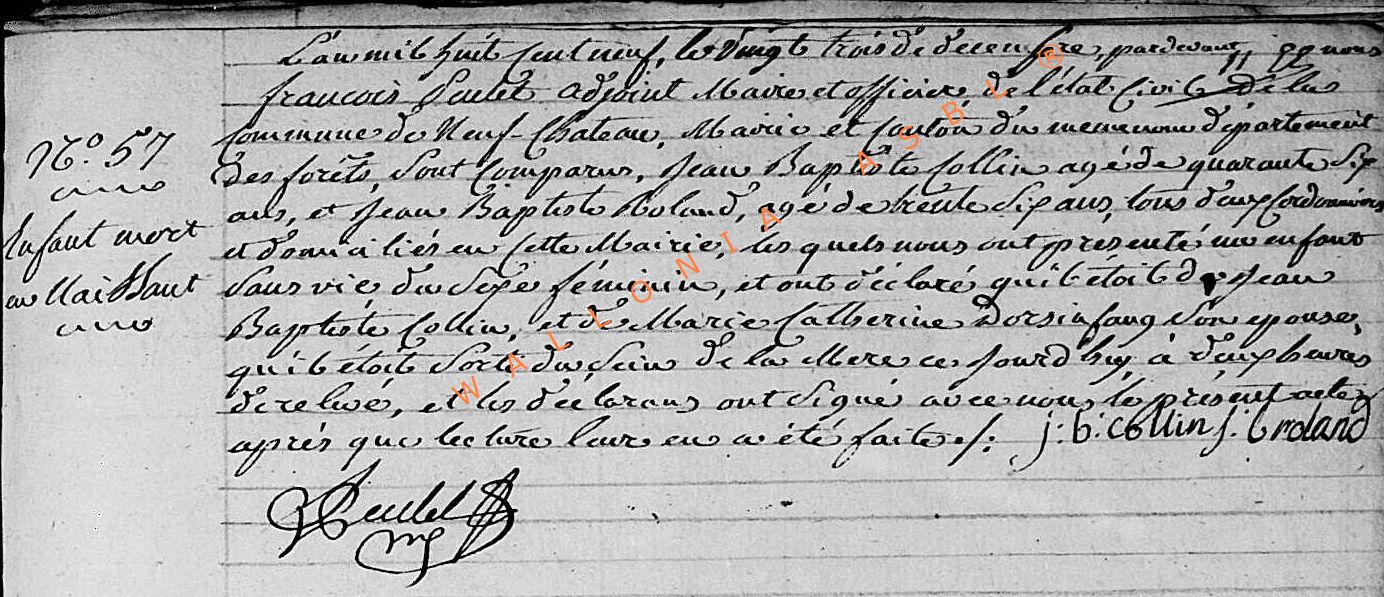 L'an mil huit cent neuf, le vingt trois de decembre, pardevant nous
françois Peulet adjoint Maire et officier de l'état Civil de la
commune de Neuf-Chateau, Mairie et canton du meme nom département
des forêts, sont comparus, Jean Baptiste Collin agé de quarante Six
ans, et Jean Baptiste Roland, agé de trente Six ans, tous deux Cordonniers
et domiciliés en cette Mairie, les quels nous ont presenté un enfant
sans vie du Sexe féminin, et ont déclaré qu'il étoit de Jean
Baptiste Collin, et de Marie Catherine Dorsinfang Son epouse,
qu'il étoit Sorti du Sein de la Mere ce jourd'huy à deux heures
de relevé, et les déclarans ont Signé avec nous le présent acte
aprés que lecture leur en a été faite ./. j: b: collin j: b roland
N.° 57
Enfant mort
en Naissant
Peulet
WALLONIA ASBL ®